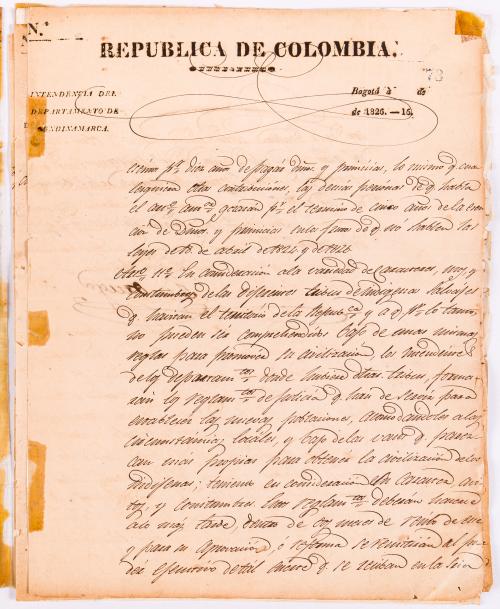 N.º
REPUBLICA DE COLOMBIA.
73
INTENDENCIA DEL
DEPARTAMENTO DE
CUNDINAMARCA.
Bogotá á de
de 1826.—16.
diez años de pagar y primicias, lo mismo q. cua
lesquiera otras contribuciones, las demas personas de q. habla
el gozarán pr. el termino de cinco años de la exen
cion de y primicias en la forma q.
leyes de de abril de 1824 y de 1826
11º En consideración a la variedad de caracteres, usos, y
costumbres de las diferentes tribus de indigenas salvajes
q. habitan el territorio de la Republica y a q. pr. lo tanto
no pueden ser comprehendidas bajo de unas mismas
reglas para promover su civilización, los Intendentes
de los departamtos. donde hubiere tales tribus, forma
rán los reglamtos. de policia q. han de servir para
establecer las nuevas poblaciones, acomodandolos a las
circunstancias locales, y bajo de las q. parez
can más propias para obtener la civilización de los
indigenas; teniendo en consideración su caracter, usos
y costumbres. Estos reglamtos. deberán hacerse
a lo más tarde, dentro de dos meses de
y para su aprovación, ó reforma se remitirán al po
der ejecutivo q. se reciban en la